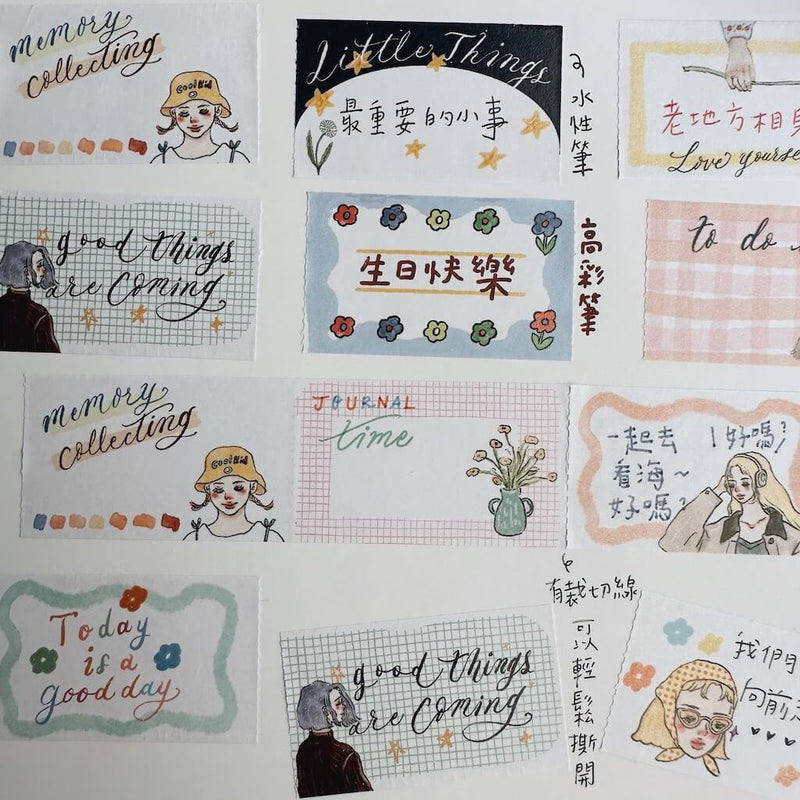 memory
collecting
Cool Kid
Little Things
最重要的小事
水性筆
老地方相見
Love yourse
good things
are coming
生日快樂
高彩筆
to do
memory
collecting
Cool Kid
JOURNAL
time
一起去
看海~
好嗎?
好嗎?
有裁切線
可以輕鬆撕開
Today
is a
good day
good things
are coming
我們
向前